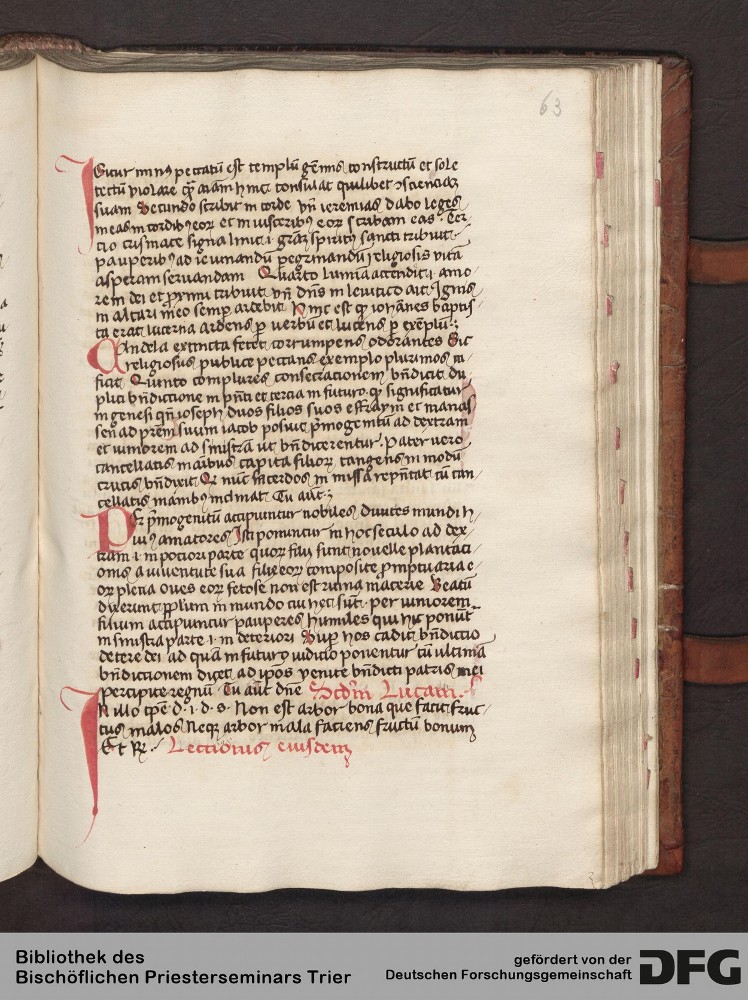 63
Igitur minus peccatū est templū gēmis constructū et sole
tectū violare
suam Secundo scribit in corde vn̄ ieremias dabo leges
meas in cordibꝰ eoꝝ et in visceribꝰ eoꝝ scribam eas. Ter
cio crismate signa linit .i. grām spiritꝰ sancti tribuit
pauperibꝰ ad ieiunandū pegrinandū religiosis vitā
asperam seruandam Quarto lumīa accendit .i. amo
rem dei et proximi tribuit vn̄ dn̄s in leuitico ait Ignis
in altari meo semp ardebit Hinc est qꝫ iohānes baptis
ta erat lucerna ardens ꝑ verbū et lucens ꝑ exēplū
Candela extincta fetet corrumpens odorantes Sic
religiosus publice peccans exemplo plurimos in
ficit Quinto complures consecracionem bn̄dicit du
plici bn̄dictione in pn̄ti et tercia in futuro qꝫ significatur
in genesi qn̄ ioseph duos filios suos effraym et manas
sen ad prēm suum iacob posuit p̄mogenitū ad dextram
et iuniorem ad sinistrā ut bn̄dicerentur. Pater uero
cancellatis manibus capita filioꝝ tangens in modū
crucis bn̄dixit Qꝫ nūc sacerdos in missa repn̄tat cū can
cellatis manibꝰ inclinat Tu aūt
Per p̄mogenitū accipiuntur nobiles diuites mundi h
uius amatores Isti ponuntur in hoc seculo ad dex
tram .i. in pociori parte quoꝝ filij sicut nouelle plantaci
onis a iuuentute sua filie eoꝝ composite promptuaria e
oꝝ plena oues eoꝝ fetose non est ruina macerie Beatū
dixerunt pplūm in mundo cui hec sūt. per iuniorem
filium accipiuntur pauperes humiles qui hic ponūt
in sinistra parte .i. in deteriori Sup hos cadit bn̄dictio
dextere dei ad quā in futuro iudicio ponentur cū ultima
bn̄dictionem diget ad ip̄os venite bn̄dicti patris mei
percipite regnū Tu aūt dn̄e Scd̄m Lucam
In illo tp̄e d. i. d. s. Non est arbor bona que facit fruc
tus malos Neqꝫ arbor mala faciens fructū bonum
Et R. Lectionis eiusdem
Bibliothek des
Bischöflichen Priesterseminars Trier
gefördert von der
Deutschen Forschungsgemeinschaft
DFG